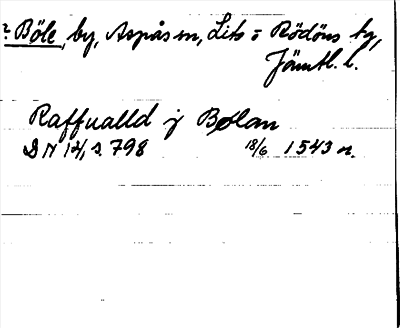 ? Böle, by, Aspås sn, Lits o Rödöns tg,
Jämtl. l.
Raffualld j Bølan
DN 14, s. 798 18/6 1543 n.